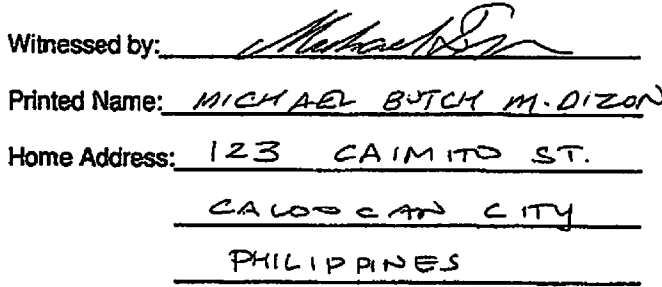 Witnessed by:
Printed Name: MICHAEL BUTCH M. DIZON
Home Address: 123 CAIMITO ST.
CALOOCAN CITY
PHILIPPINES